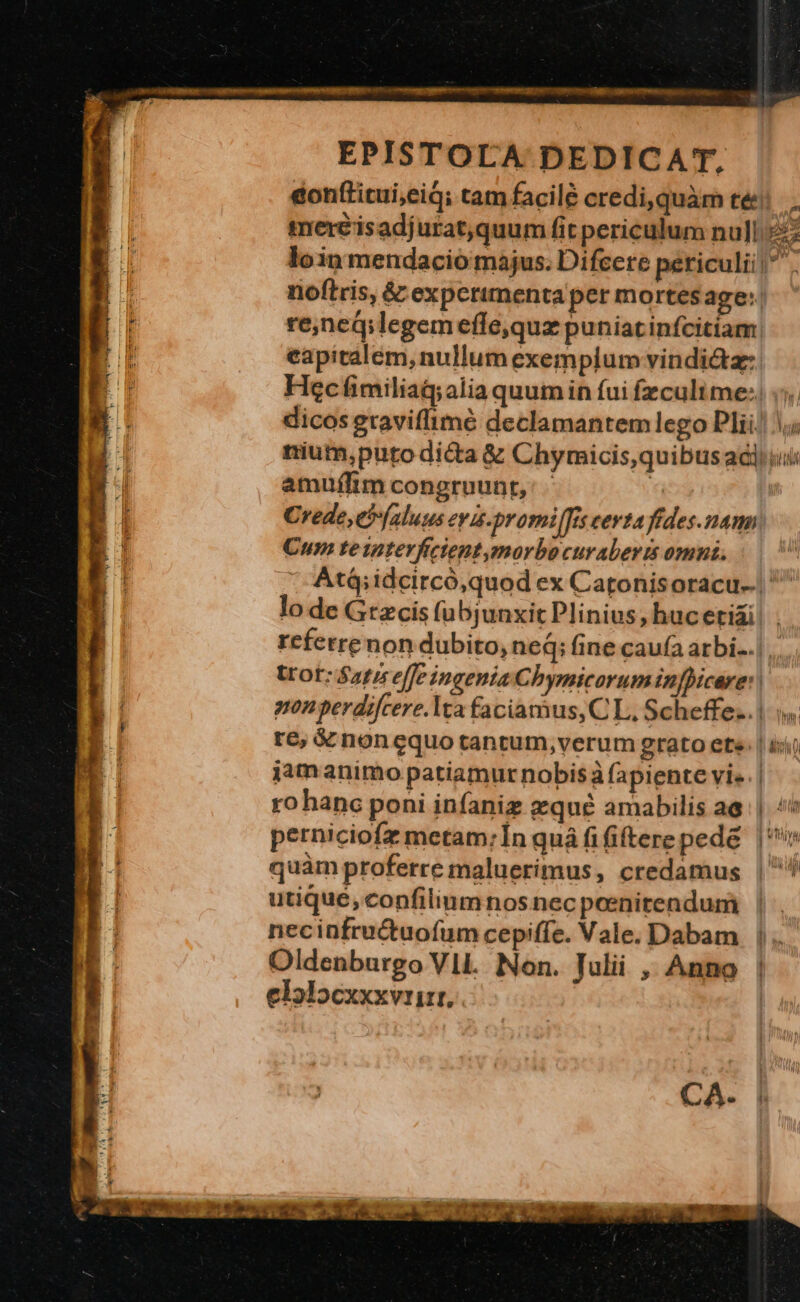 EPISTOLA DEDICAT.
conſtitui,eiq́; tam facilè credi,quàm te-
merè is adjurat,quum ſit periculum nul-
lo in mendacio majus. Diſcere periculis
noſtris, & experimenta per mortes age-
re;neq́; legem eſſe,quæ puniat inſcitiam
capitalem, nullum exemplum vindictæ:
Hęc ſimiliaq́; alia quum in ſui ſæculi me-
dicos graviſſimè declamantem lego Pli-
nium,puto dicta & Chymicis,quibus ad
amuſſim congruunt,
Crede,& ſaluus eris.promiſſis certa fides.nam
Cum te interficient,morbo curaberis omni.
Atq́; idcircò,quod ex Catonis oracu-
lo de Græcis ſubjunxit Plinius, huc etiã
referre non dubito, neq́; ſine cauſa arbi-
tror: Satis eſſe ingenia Chymicorum inſpicere:
non perdiſcere. Ita faciamus, C L. Scheffe-
re, & non equo tantum,verum grato et-
jam animo patiamur nobis à ſapiente vi-
ro hanc poni inſaniæ æquè amabilis ac
pernicioſæ metam; In quâ ſi ſiſtere pedẽ
quàm proferre maluerimus, credamus
utique, conſilium nos nec pœnitendum
nec infructuoſum cepiſſe. Vale. Dabam
Oldenburgo VII. Non. Julii , Anno
cIↄIↄcxxxvIIII.
CA-